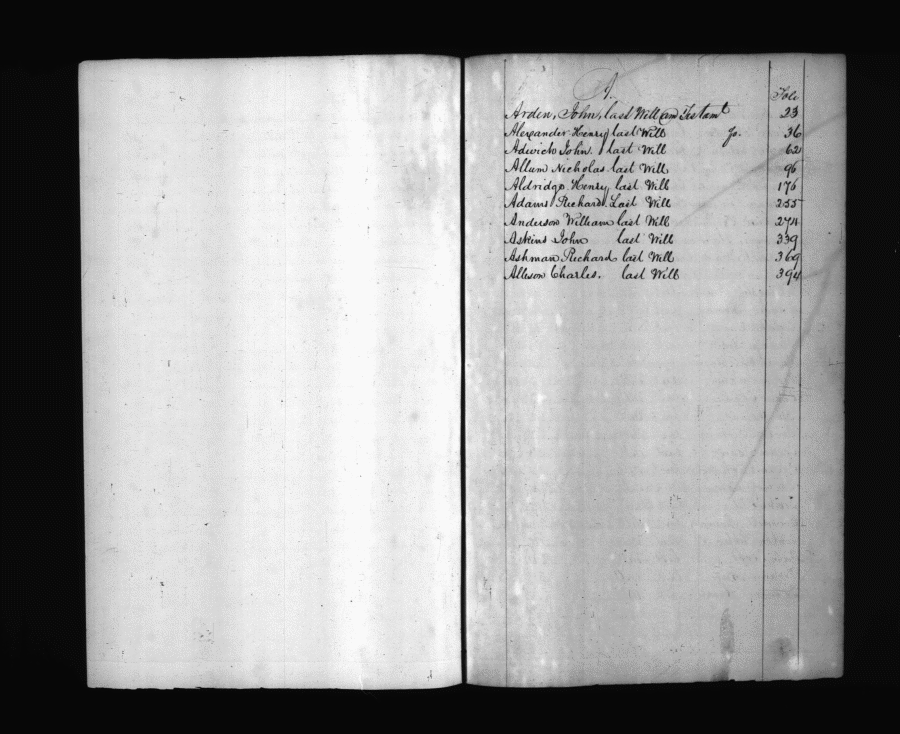 A.
Folo
Arden, John, last Will and Testamt 23
Alexander Henry last Will fo. 36
Adwick John. last Will 62
Allum Nicholas last Will 96
Aldridge Henry last Will 176
Adams Richard Last Will 255
Anderson William last Will 274
Askins John last Will 339
Ashman Richard last Will 369
Allison Charles. last Will 394